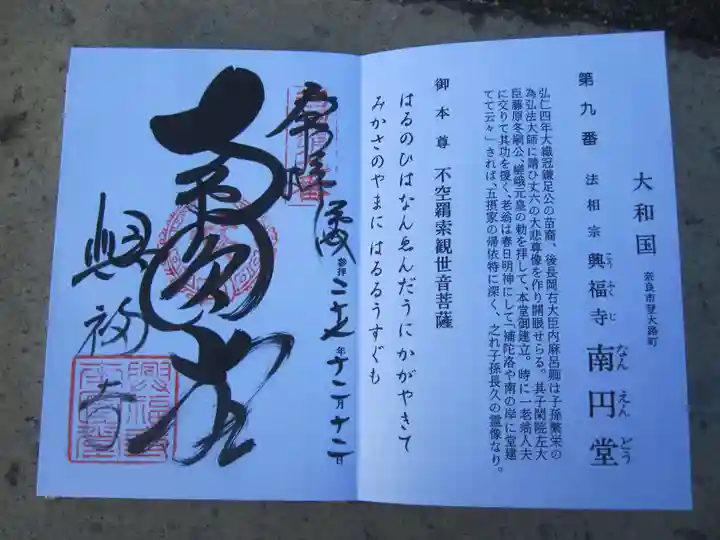 大和国 奈良市登大路町
第九番 法相宗 興福寺 南円堂
こうふくじ なんえんどう
弘仁四年大織冠鎌足公の苗裔、後長岡右大臣内麻呂卿は子孫繁栄の
為弘法大師に請ひ丈六の大悲尊像を作り開眼せらる。其子閑院左大
臣藤原冬嗣公、嵯峨元皇の勅を拝して、本堂御建立。時に一老翁人夫
に交りて其功を援く、老翁は春日明神にして「補陀洛や南の岸に堂建
てて云々」されば、五摂家の帰依特に深く、之れ子孫長久の霊像なり。
御本尊 不空羂索観世音菩薩
はるのひはなんゑんだうにかがやきて
みかさのやまに はるるうすぐも
奉拝 参拝 二十七年十二月十二日
南円堂
興福寺